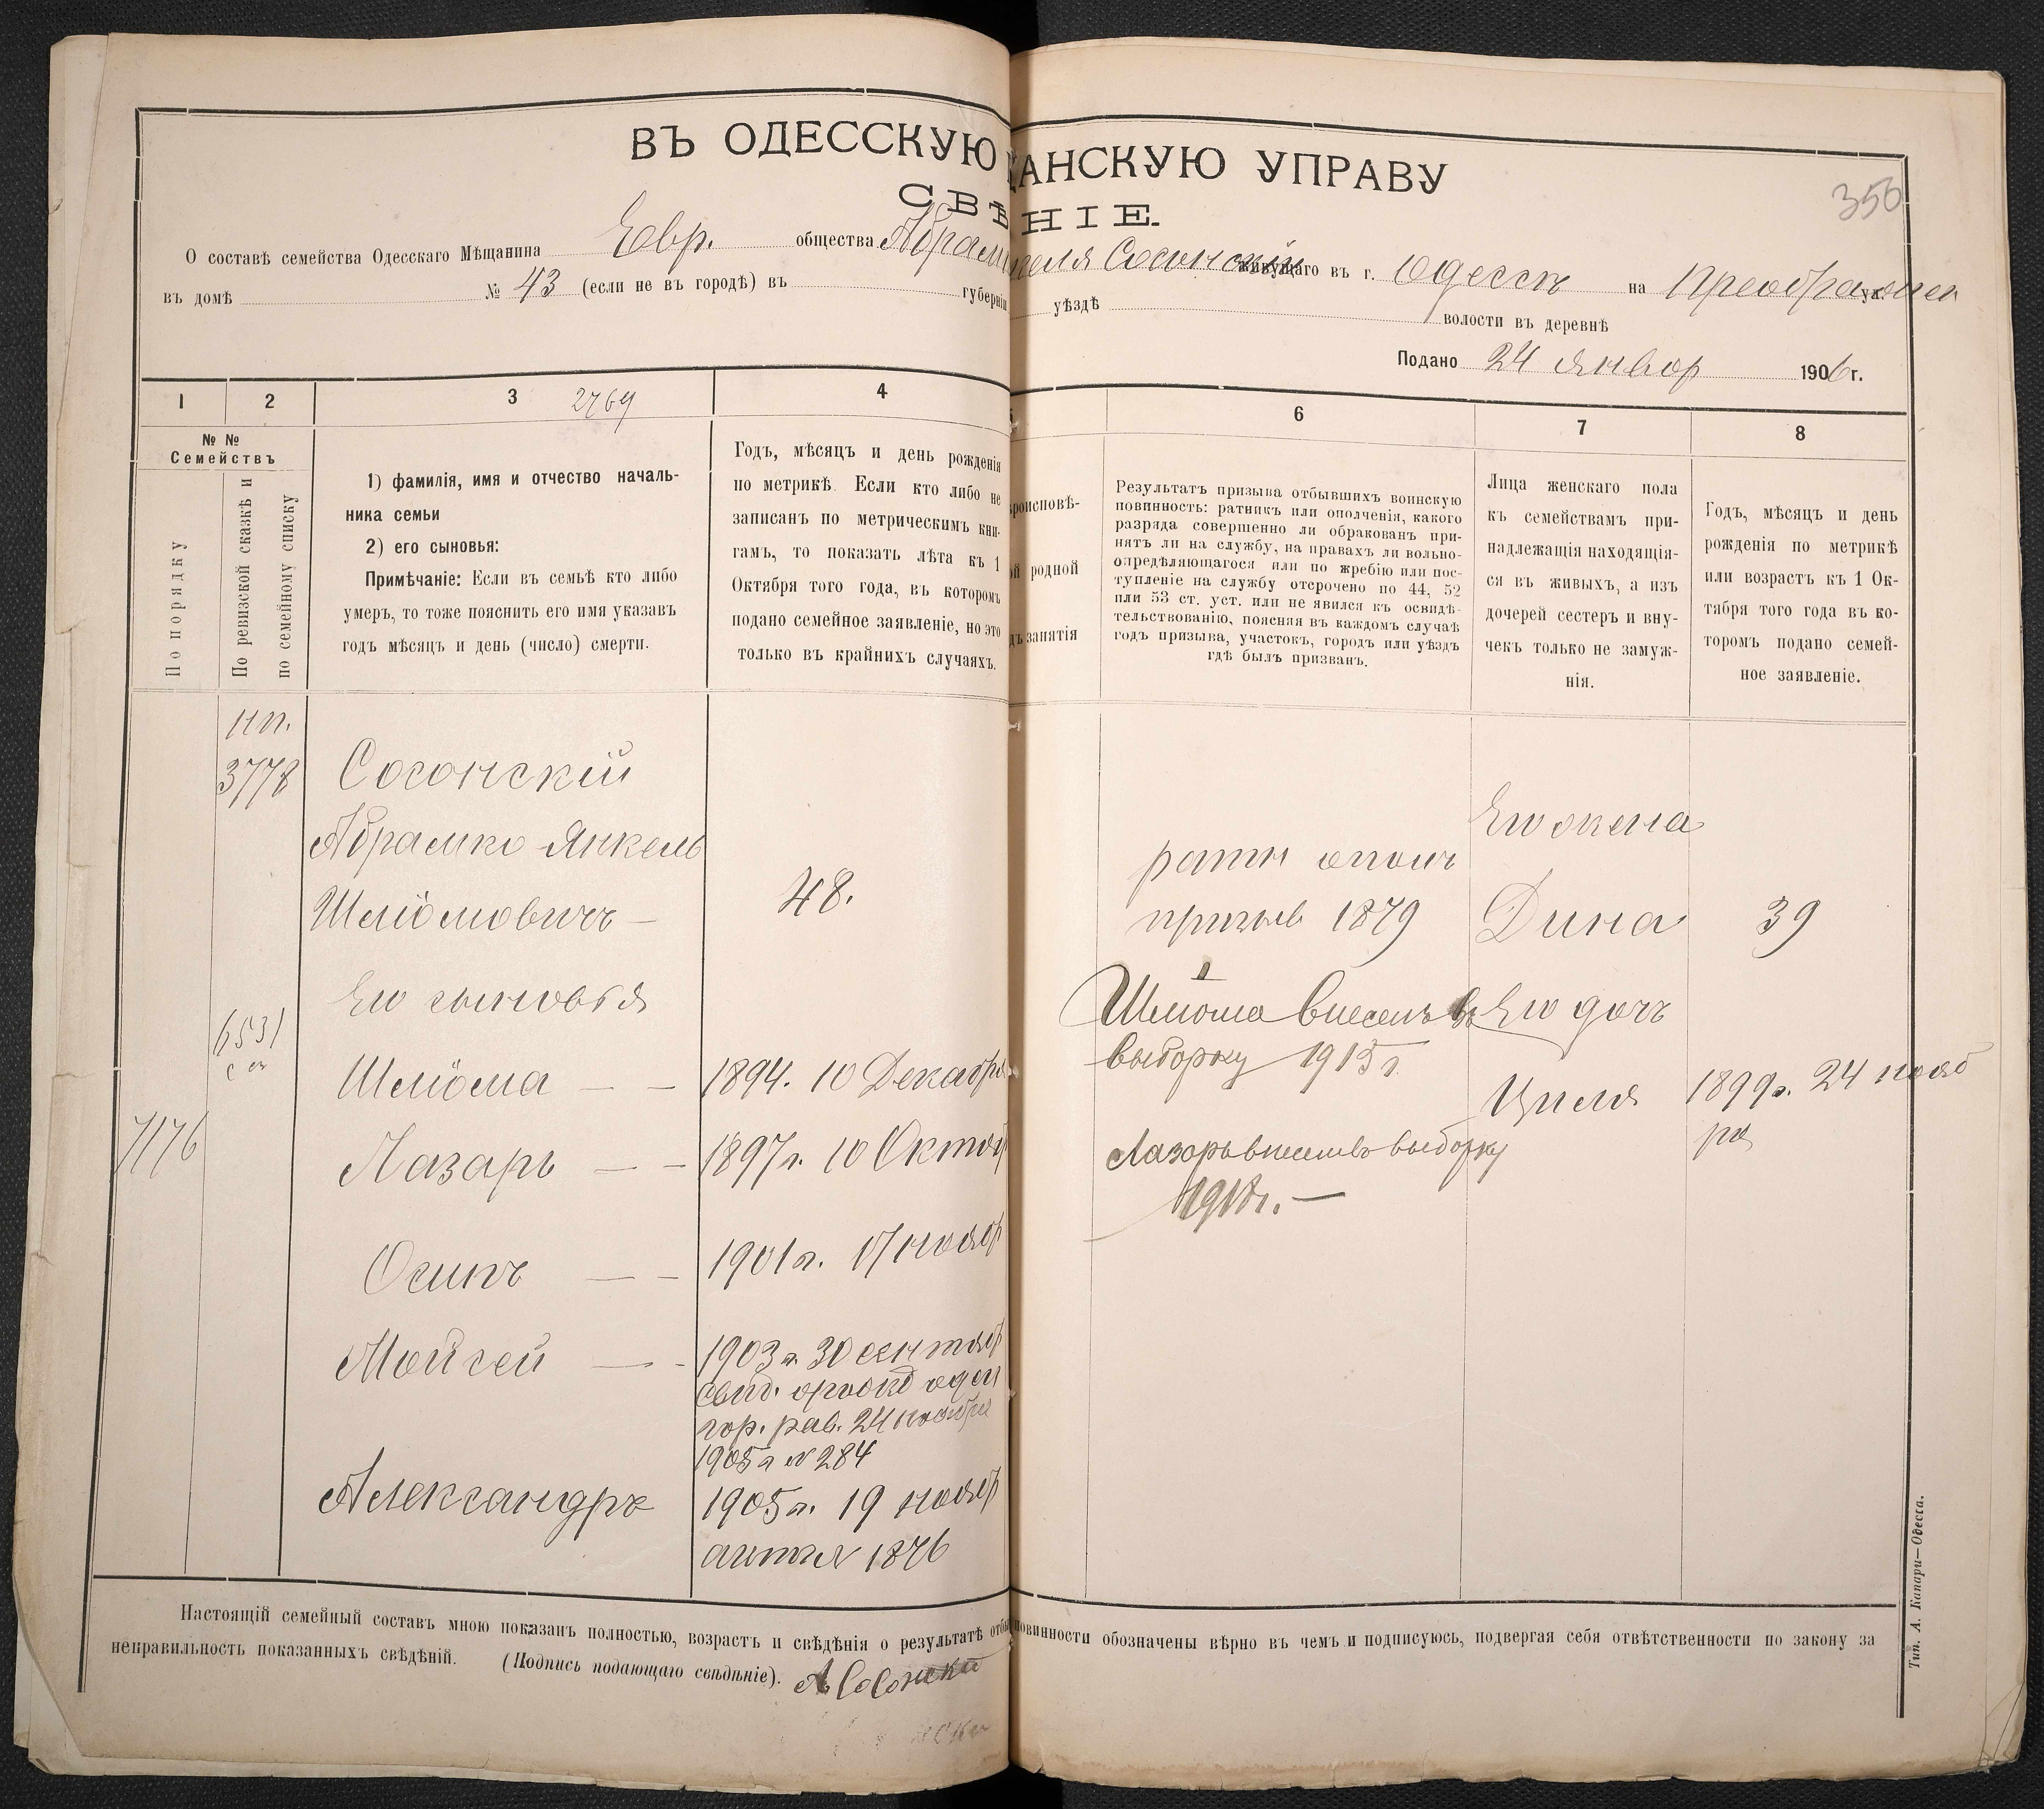 ВЪ ОДЕССКУЮ
ЩАНСКУЮ УПРАВУ
СВѢ
НІЕ.
350
О составѣ семейства Одесскаго Мѣщанина Евр. общества Абрам
келя Сосонскій живущаго въ г. Одессѣ на Преображен ул.
въ домѣ № 43 (если не въ городѣ) въ губерніи
уѣздѣ волости въ деревнѣ
Подано 24 январ 1906 г.
1 2 3 2769 4
6 7 8
№ №
Семействъ
По порядку
По ревизской сказкѣ и
по семейному списку
1) фамилія, имя и отчество началь-
ника семьи
2) его сыновья:
Примѣчаніе: Если въ семьѣ кто либо
умеръ, то тоже пояснить его имя указавъ
годъ мѣсяцъ и день (число) смерти.
Годъ, мѣсяцъ и день рожденія
по метрикѣ. Если кто либо не
записанъ по метрическимъ кни-
гамъ, то показать лѣта къ 1
Октября того года, въ которомъ
подано семейное заявленіе, но это
только въ крайнихъ случаяхъ.
роисповѣ-
родной
занятія
Результатъ призыва отбывшихъ воинскую
повинность: ратникъ или ополченія, какого
разряда совершенно ли обракованъ при-
нятъ ли на службу, на правахъ ли вольно-
опредѣляющагося или по жребію или пос-
тупленіе на службу отсрочено по 44, 52
или 53 ст. уст. или не явился къ освидѣ-
тельствованію, поясняя въ каждомъ случаѣ
годъ призыва, участокъ, городъ или уѣздъ
гдѣ былъ призванъ.
Лица женскаго пола
къ семействамъ при-
надлежащія находящія-
ся въ живыхъ, а изъ
дочерей сестеръ и вну-
чекъ только не замуж-
нія.
Годъ, мѣсяцъ и день
рожденія по метрикѣ
или возрастъ къ 1 Ок-
тября того года въ ко-
торомъ подано семей-
ное заявленіе.
3778
Сосонскій
Абрамко Янкель
Шліомовичъ —
48.
ратн ополч
призыв 1879
Его жена
Дина
39
Его сыновья
6531
Шліома — —
1894. 10 Декабря
Шліома внесенъ въ
выборку 1915 г.
Его дочь
Циля
1899г. 24 нояб
ря
7176
Лазарь — —
1897г. 10 Октяб
Лазарь внесенъ выборку
1918г. —
Осипъ — —
1901г. 17 ноябр
Мойсей — —
1903 г. 30 сентяб
свид. одес
гор. рав. 24 ноября
1905 г № 284
Александръ
1905 г. 19 ноябр
1876
Настоящій семейный составъ мною показанъ полностью, возрастъ и свѣдѣнія о результатѣ отбы
повинности обозначены вѣрно въ чемъ и подписуюсь, подвергая себя отвѣтственности по закону за
неправильность показанныхъ свѣдѣній. (Подпись подающаго свѣдѣніе). А Сосонски
Тип. А. Капари—Одесса.